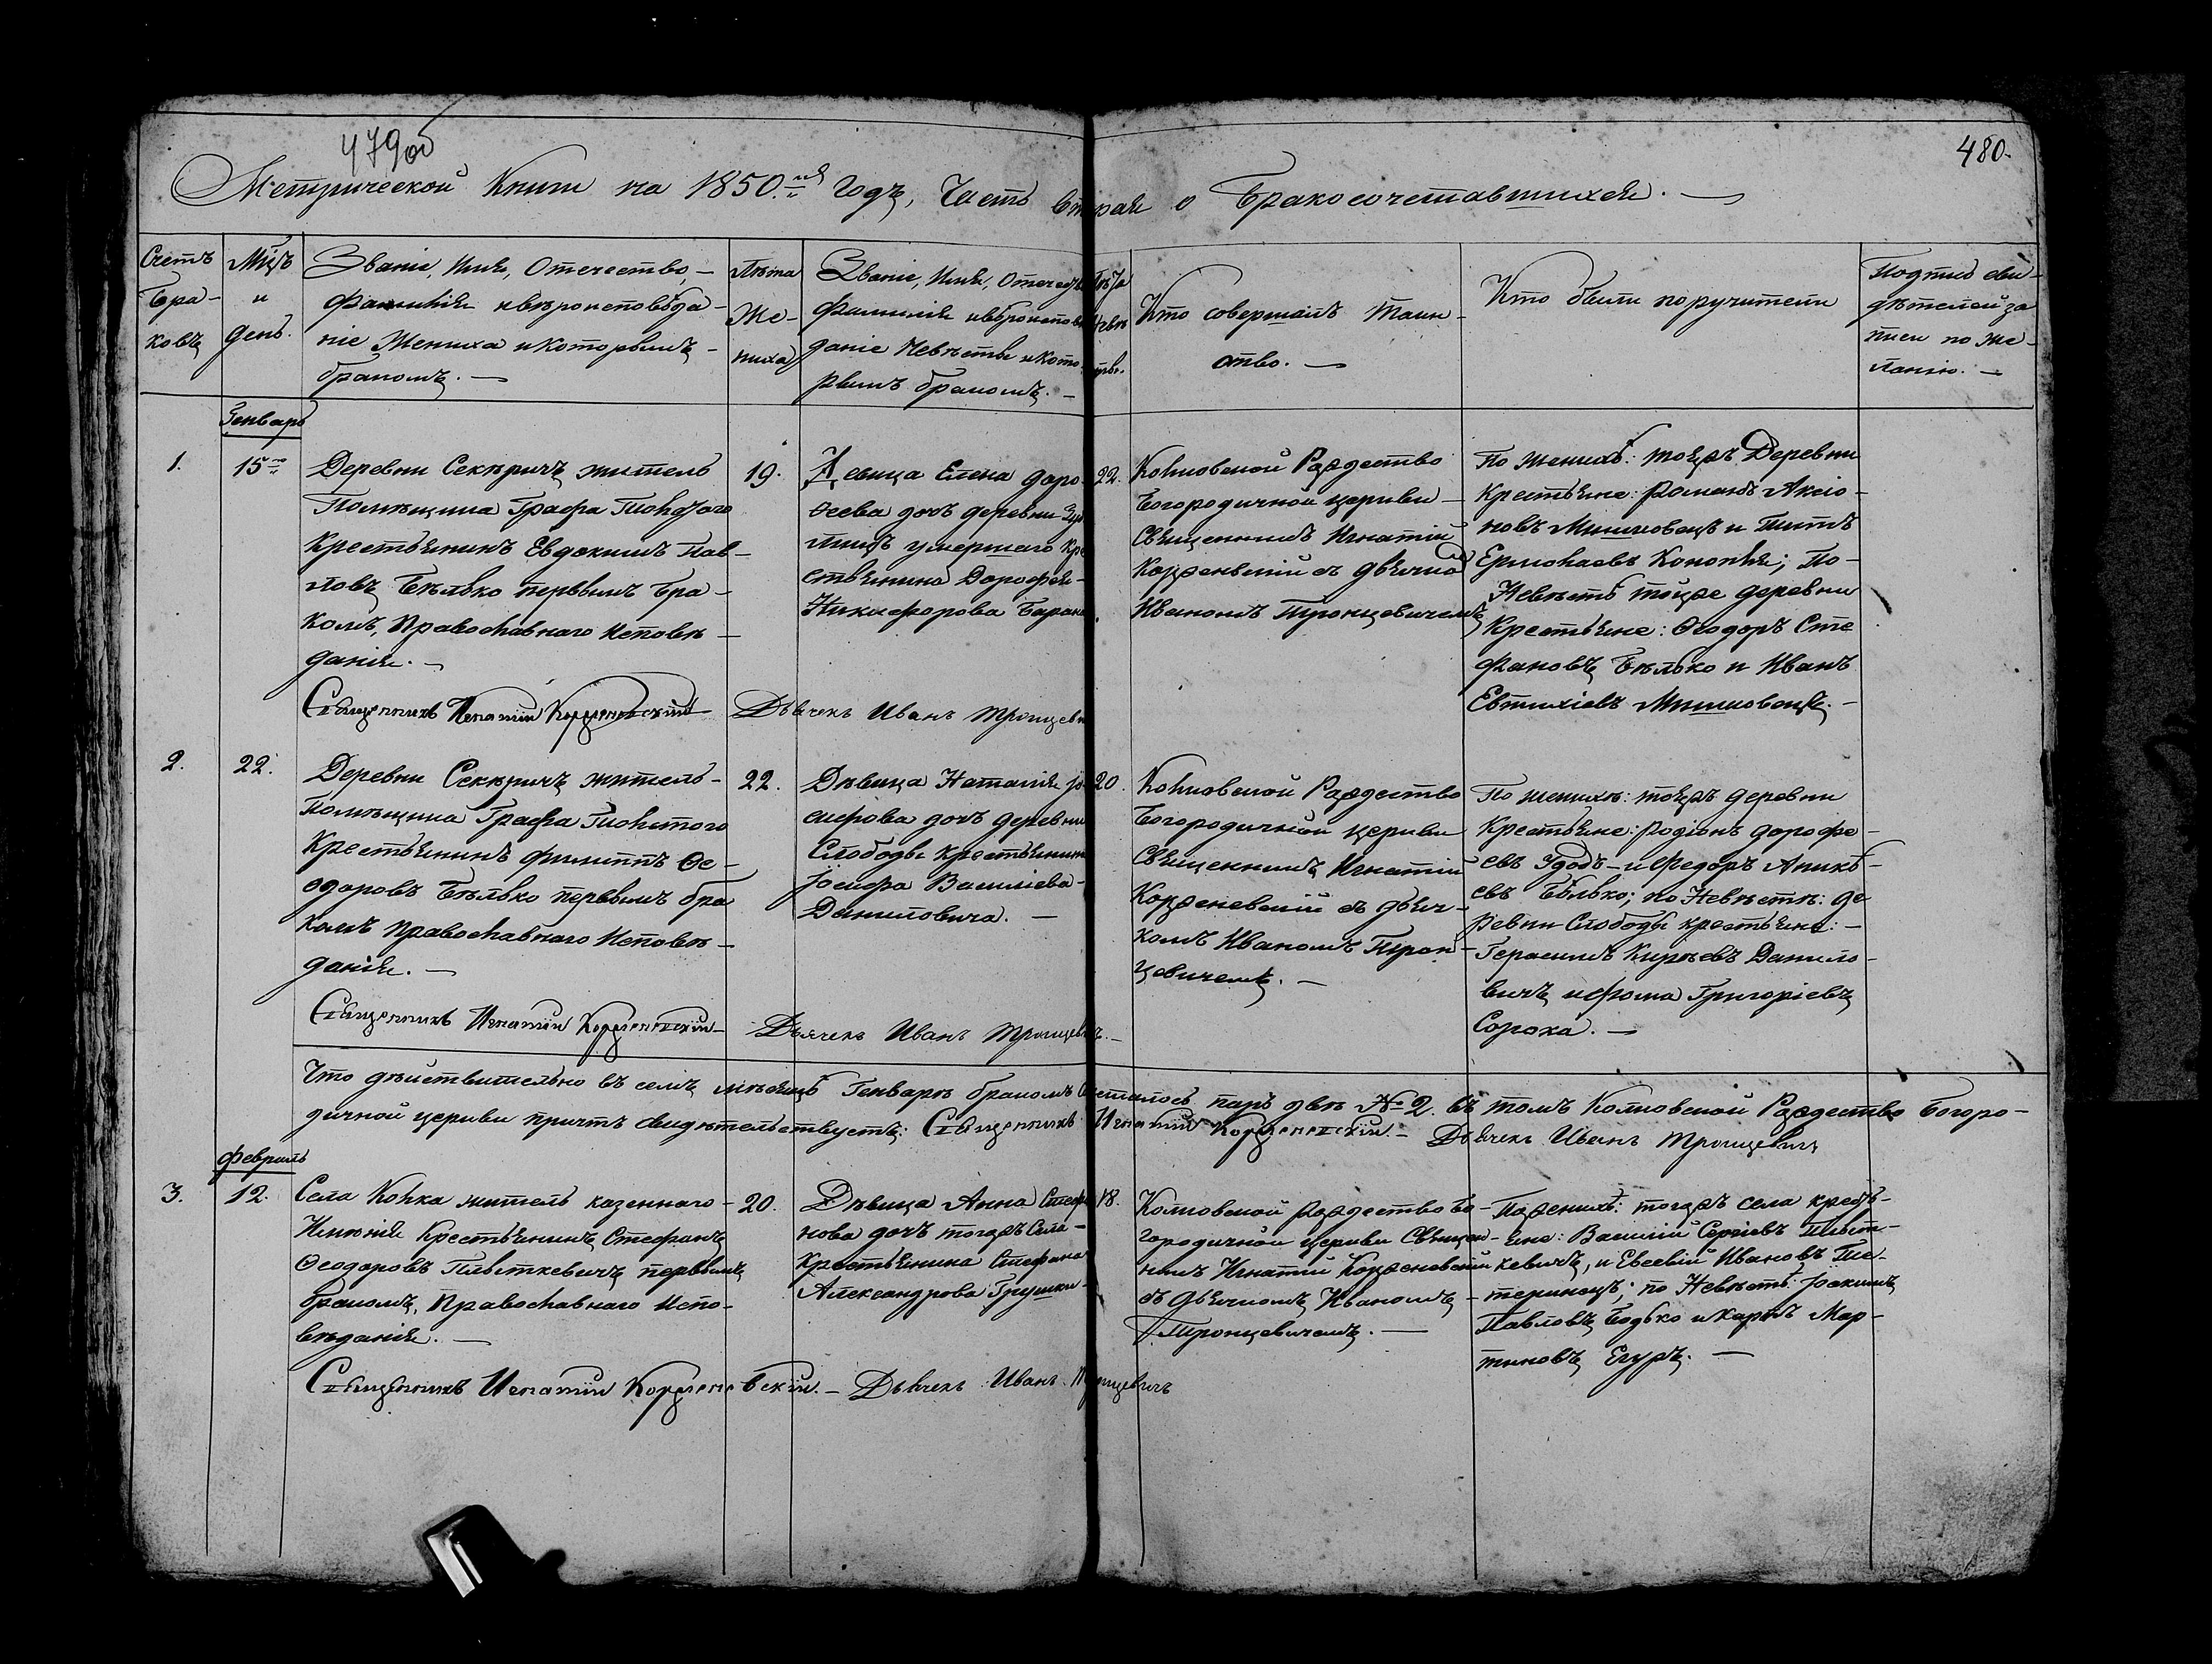 479об
480.
Метрической Книги на 1850.й Годъ, Часть вторая о Бракосочетавшихся. —
Счетъ
Бра-
ковъ
Мцъ
и
день.
Званіе, Имя, Отчество, —
Фамилія и вѣроисповѣда-
ніе Жениха и которымъ —
бракомъ. —
Лѣта
Же-
ниха
Званіе, Имя,
Фамилія
даніе Невѣсты и кото-
рымъ бракомъ. —
Кто совершалъ Таин-
ство. —
Кто были поручители
Подпись сви-
дѣтелей за
писи по же-
ланію. —
Генварь
1.
15
Деревни Секѣричъ житель
Помѣщика Графа
Крестьянинъ Евдокимъ Пав-
ловъ Бѣлько первымъ Бра-
комъ, Православнаго Исповѣ-
данія. —
19.
Дѣвица Елена Доро-
ѳеева дочь деревни
умершаго Кре
стьянина Дорофея —
Никифорова
22.
Колковской Рождество
Богородичной церкви —
Священникъ Игнатій
Корженевскій съ дьячкомъ
Иваномъ Тронцевичемъ
По женихѣ: тоей жъ Деревни
Крестьяне: Романъ Аксіо-
новъ и Титъ
Ермолаевъ Конопля; По-
Невѣстѣ тойже деревни
Крестьяне: Ѳеодоръ Сте
фановъ Бѣлько и Иванъ
Евтихіевъ
Священникъ Игнатій Корженевскій
Дьячекъ Иванъ
2.
22.
Деревни Секѣричъ житель —
Помѣщика Графа
Крестьянинъ Филиппъ Ѳе-
одоровъ Бѣлько первымъ бра
комъ Православнаго Исповѣ —
данія. —
22.
Дѣвица Наталія Іо-
сифова дочь деревни
Слободы крестьянина
Іосифа Василіева —
Даниловича. —
20.
Колковской Рождество
Богородичной церкви
Священникъ Игнатій
Корженевскій съ дьяч-
комъ Иваномъ Трон-
цевичемъ. —
По женихѣ: тоей жъ деревни
Крестьяне: Родіонъ Дорофе-
евъ Удодъ — и Федоръ Аникѣ-
евъ Бѣлько; по Невѣстѣ: де
ревни Слободы крестьяне: —
Герасимъ Кирѣевъ Данило-
вичъ и Фома Григоріевъ
Сорока. —
Священникъ Игнатій Корженевскій —
Дьячекъ Иванъ
Что дѣйствительно въ семъ мѣсяцѣ Генварѣ бракомъ сочеталось паръ двѣ № 2. въ томъ Колковской Рождество Богоро-
дичной церкви причтъ свидѣтельствуетъ: Священникъ Игнатій Корженевскій — Дьячекъ Иванъ Тронцевичъ
Февраль
3.
12.
Села Колка житель казеннаго —
Имѣнія Крестьянинъ Стефанъ
Ѳеодоровъ первымъ
бракомъ, Православнаго Испо-
вѣданія. —
20.
Дѣвица Анна Стефа
нова дочь тогожъ Села —
Крестьянина Стефана
Александрова Грушки —
18.
Колковской Рождество Бо-
городичной церкви Священ-
никъ Игнатій Корженевскій
съ Дьячкомъ Иваномъ —
Тронцевичемъ. —
По женихѣ: тогожъ села кресть-
яне: Василій Сергіевъ
кевичъ, и Евсевій Ивановъ
по Невѣстѣ: Іоакимъ
Павловъ Бодько и Карпъ Мар-
тиновъ Егуръ. —
Священникъ Игнатій Корженевскій. — Дьячекъ Иванъ Тронцевичъ